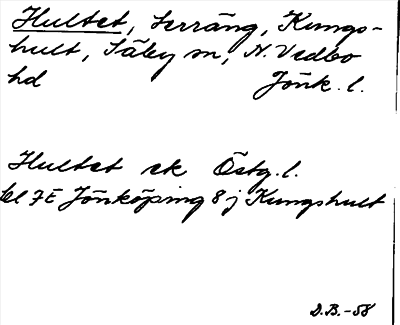 Hultet, terräng, Kungs-
hult, Säby sn, N. Vedbo
hd Jönk. l.
Hultet ek Östg. l.
bl 7E Jönköping 8 j Kungshult
D.B.-58